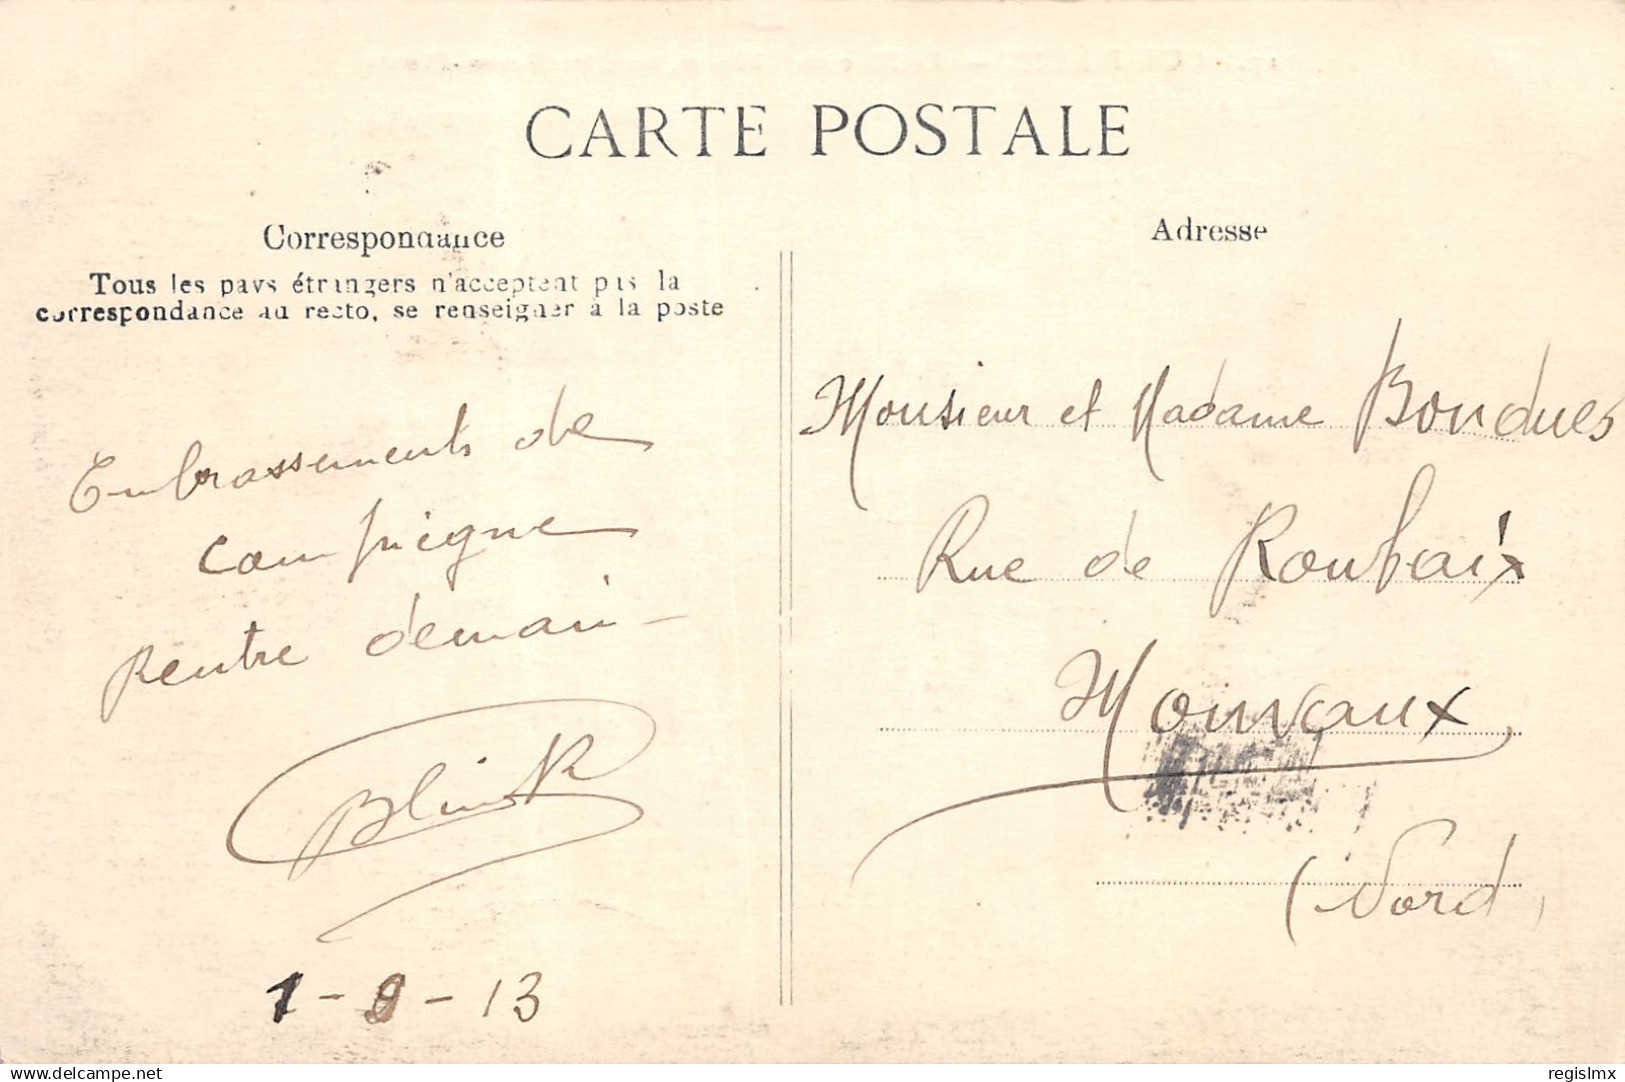 CARTE POSTALE
Correspondance
Tous les pays étrangers n'acceptent pas la
correspondance au recto, se renseigner à la poste
Embrassements de
Compiègne
Rentre demain -
1-9-13
Adresse
Monsieur et Madame Bondues
Rue de Roubaix
Mouvaux
(Nord)
delcampe.net
regislmx